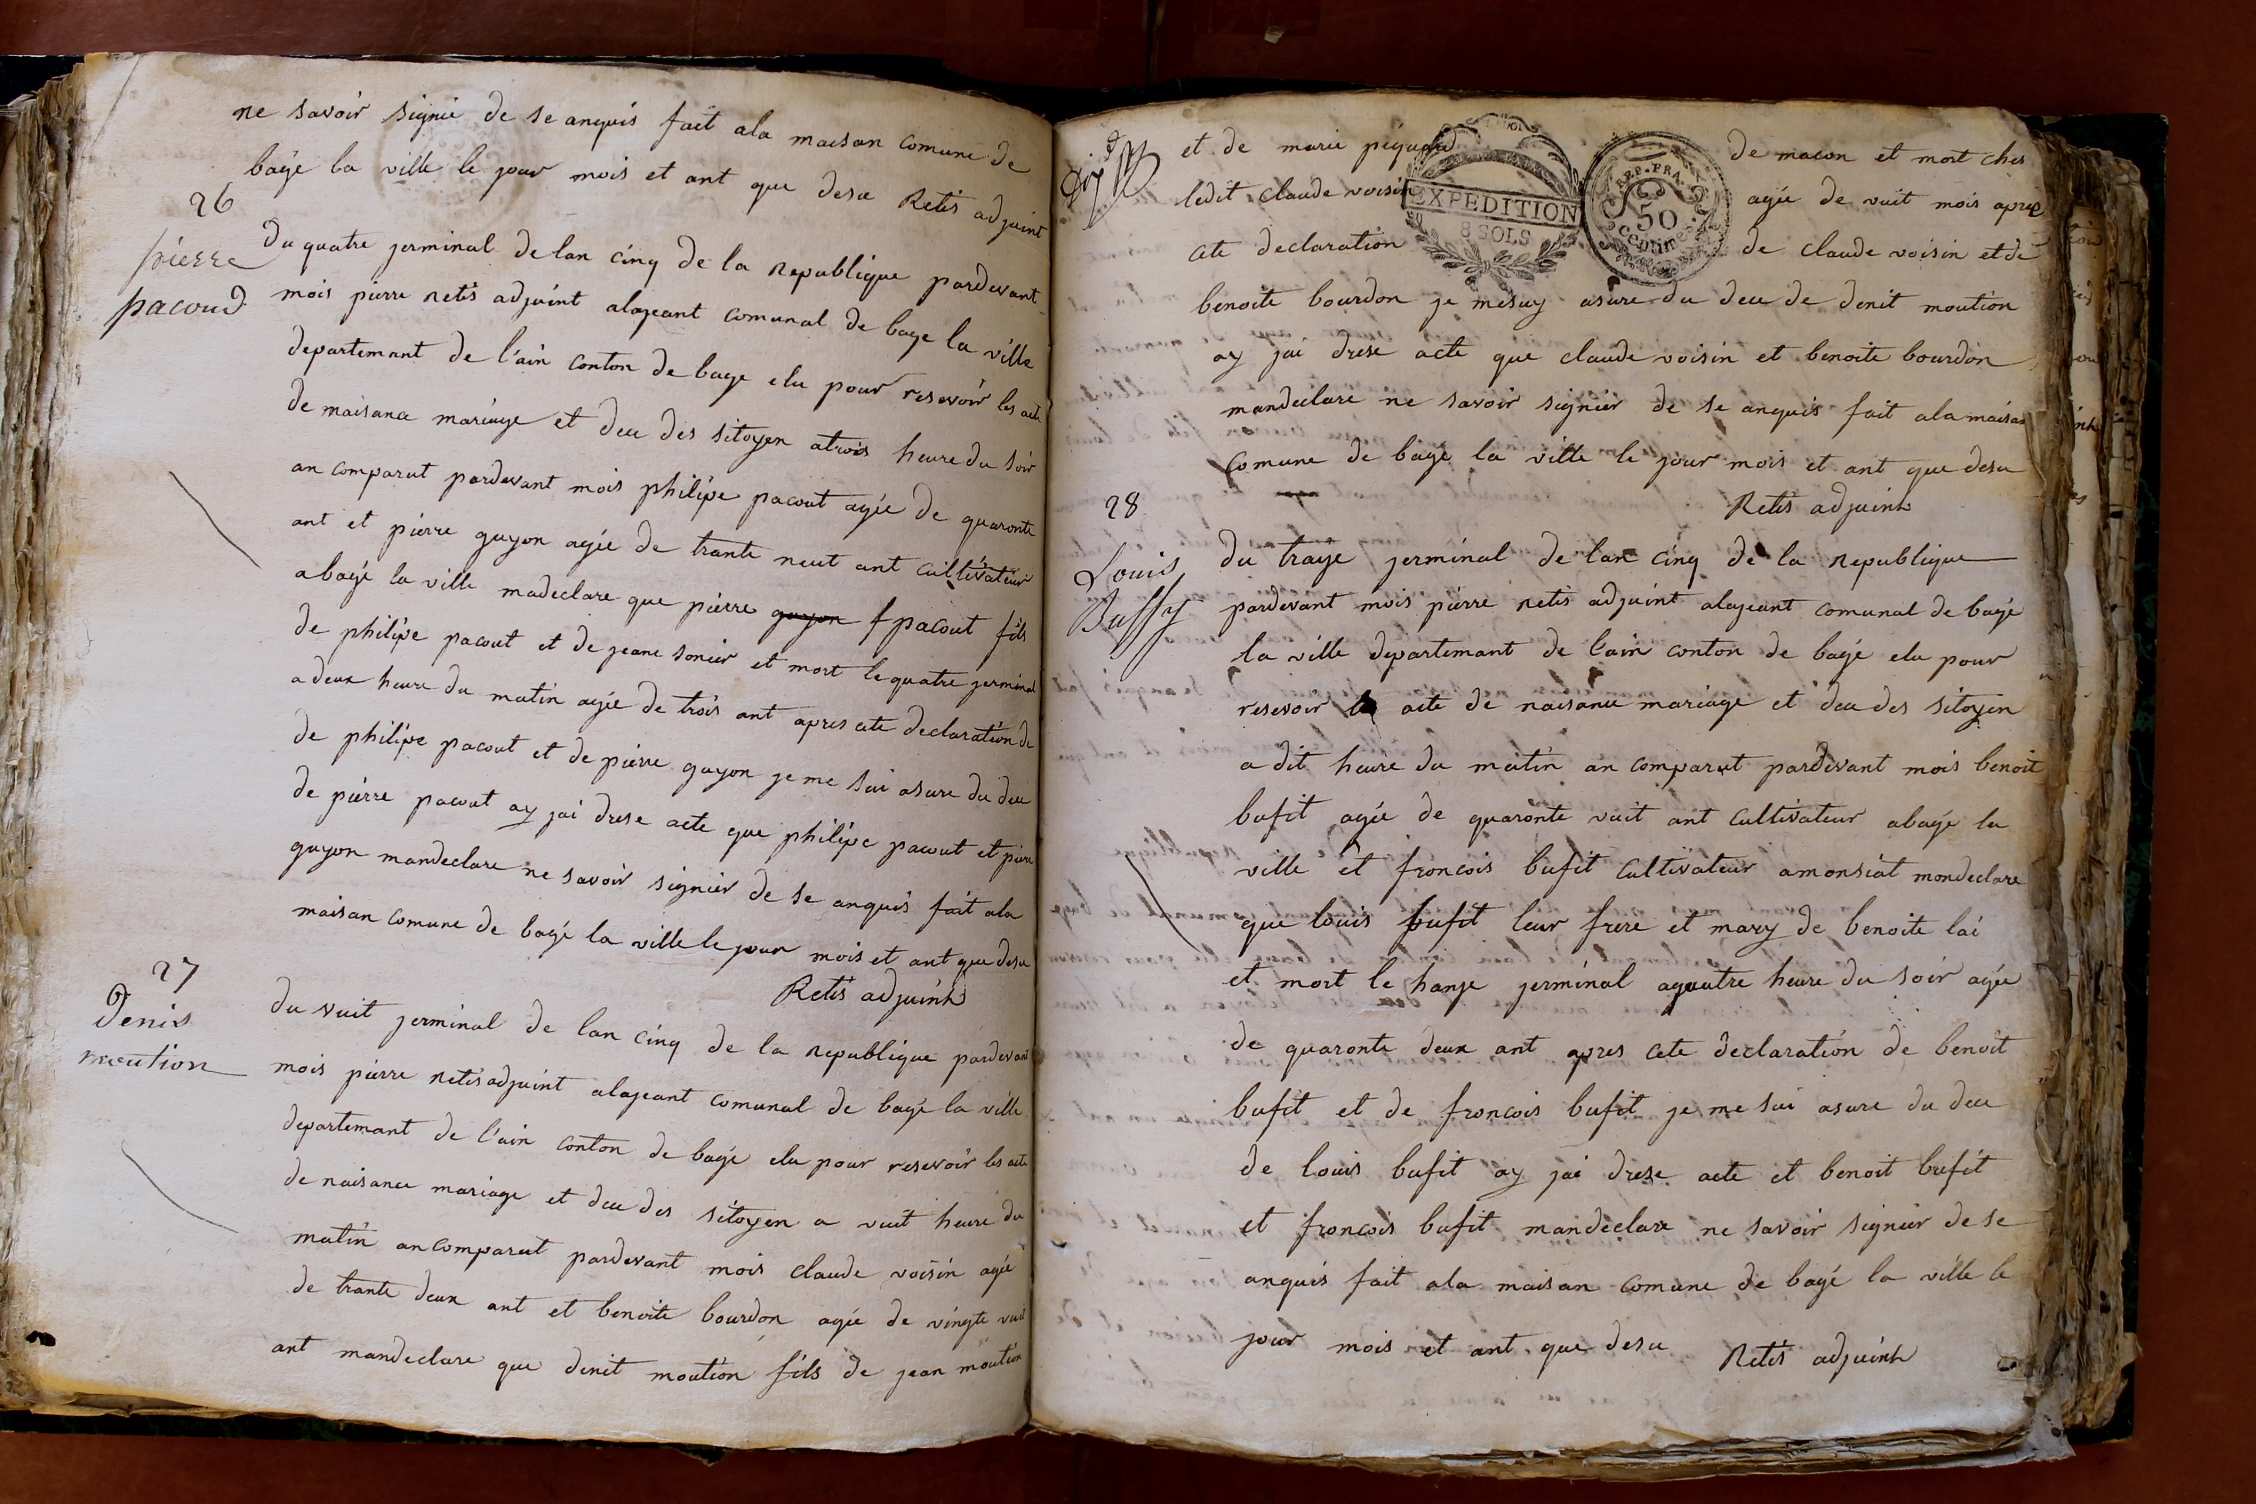 ne savoir signié de se anquis fait ala maison comune de
bagé la ville le jour mois et ant que desu Retis adjuint
26
pierre
pacoud
du quatre jerminal de lan cinq de la republique pardevant
mois pierre retis adjuint alajeant comunal de bage la ville
departemant de l'ain conton de bage elu pour resevoir les acte
de naisance mariage et deu des sitoyen atrois heure du soir
an comparut pardevant mois philipe pacout agée de quaronte
ant et pierre guyon agée de trante neut ant cultivateur
abagé la ville madeclare que pierre guyon pacout fils
de philipe pacout et de jeane sonier et mort le quatre jerminal
a deux heure du matin agée de trois ant apres cete declaration de
de philipe pacout et de pierre guyon je me sui asure du deu
de pierre pacout ay jai drese acte que philipe pacout et pierre
guyon mandeclare ne savoir signier de se anquis fait ala
maison comune de bagé la ville le jour mois et ant que desu
Retis adjuint
27
Denis
moution
du vuit jerminal de lan cinq de la republique pardevant
mois pierre retis adjuint alajeant comunal de bagé la ville
departemant de l'ain conton de bagé elu pour resevoir les acte
de naisance mariage et deu des sitoyen a vuit heure du
matin an comparut pardevant mois claude voisin agée
de trante deux ant et benoite bourdon agée de vingte vuit
ant mandeclare que denit moution fils de jean moution
et de marie piquand de macon et mort ches
ledit claude voisin agée de vuit mois apres
cete declaration de claude voisin et de
EXPEDITION
8 SOLS
REP. FRA.
50
centimes
benoite bourdon je mesuy asure du deu de denit moution
ay jai drese acte que claude voisin et benoite bourdon
mandeclare ne savoir signier de se anquis fait ala maison
comune de bagé la ville le jour mois et ant que desu
Retis adjuint
28
Louis
Buffy
du traze jerminal de lan cinq de la republique
pardevant mois pierre retis adjuint alajeant comunal de bagé
la ville departemant de l'ain conton de bagé elu pour
resevoir les acte de naisance mariage et deu des sitoyen
a dit heure du matin an comparut pardevant mois benoit
bufit agée de quaronte vuit ant cultivateur abagé la
ville et froncois bufit cultivateur amonsiat mondeclare
que louis bufit leur frere et mary de benoite lai
et mort le honze jerminal aquatre heure du soir agée
de quaronte deux ant apres cete declaration de benoit
bufit et de froncois bufit je me sui asure du deu
de louis bufit ay jai drese acte et benoit bufit
et froncois bufit mandeclare ne savoir signier de se
anquis fait ala maison comune de bagé la ville le
jour mois et ant que desu Retis adjuint